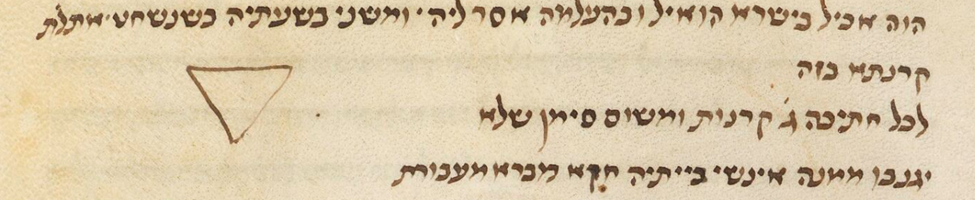 הוה אכיל בישרא הואיל ובהעלמה אסר ליה ומשני בשעתיה כשנשחט אתלת
קרנתא כזה
לכל חתיכה ג' קרנות ומשום סימן שלא
יגנבו ממנה אינשי בייתיה חקא מברא מעברת